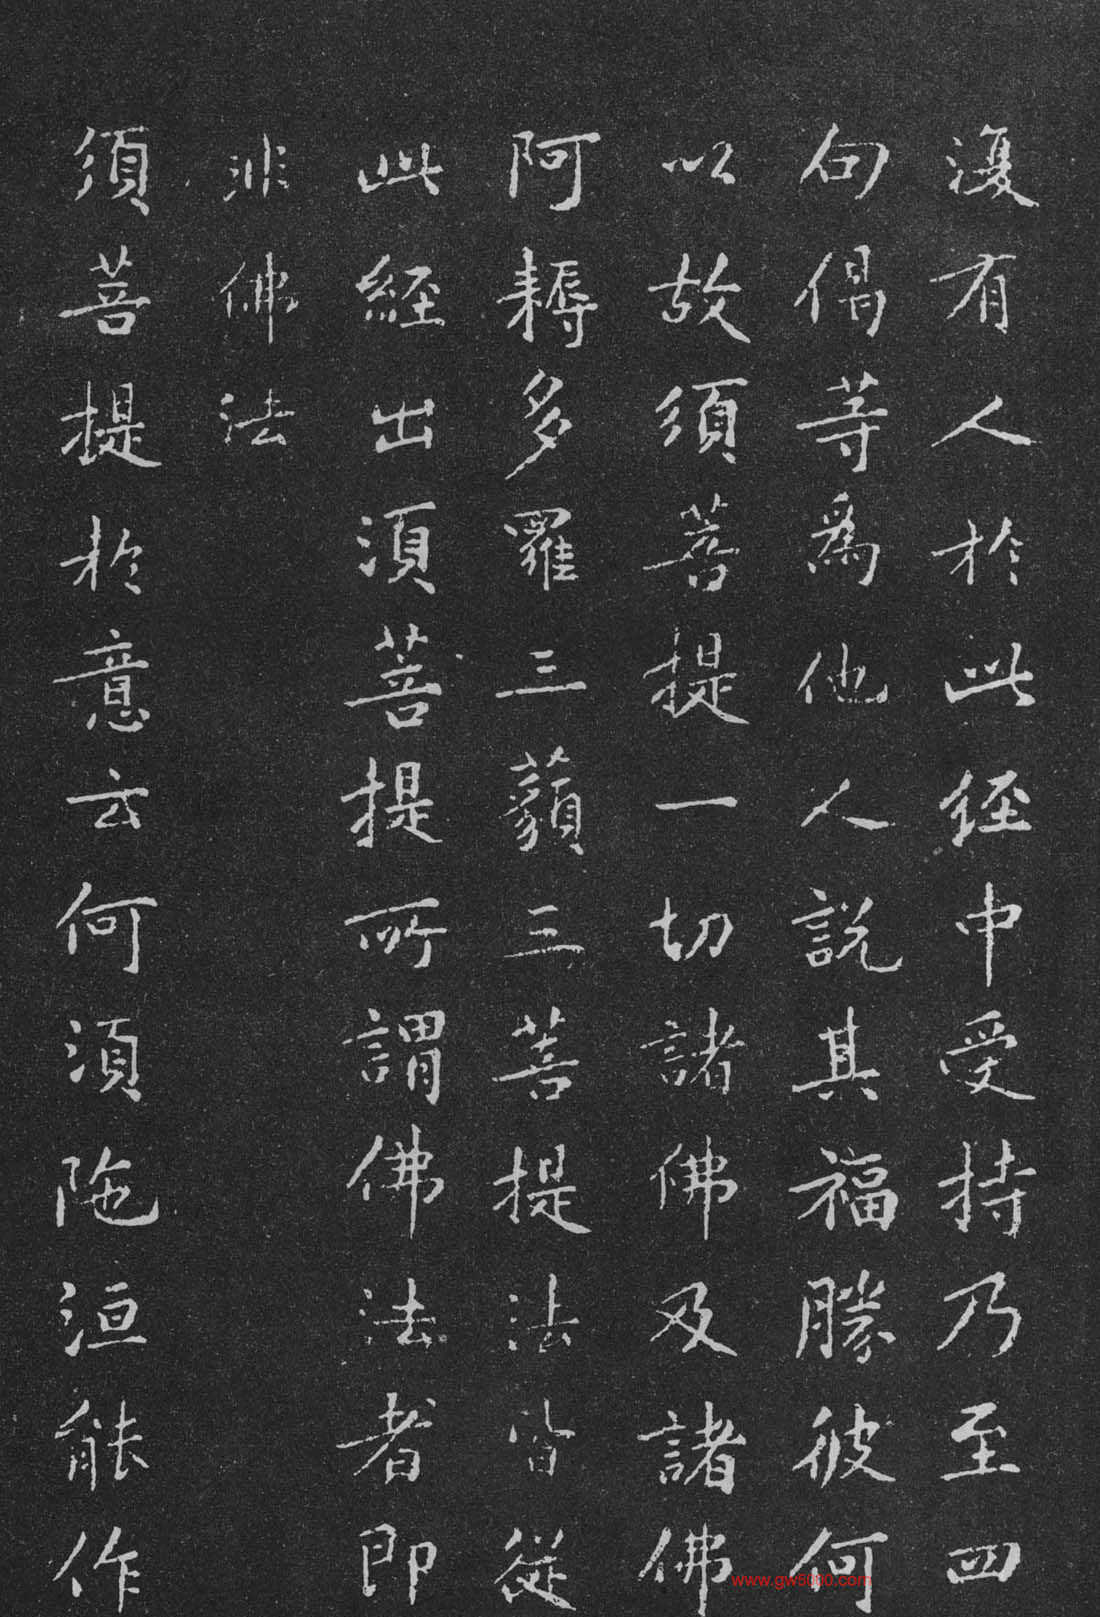 復有人於此經中受持乃至四
句偈等為他人說其福勝彼何
以故須菩提一切諸佛及諸佛
阿耨多羅三藐三菩提法皆從
此經出須菩提所謂佛法者即
非佛法
須菩提於意云何須陁洹能作
www.gw5000.com